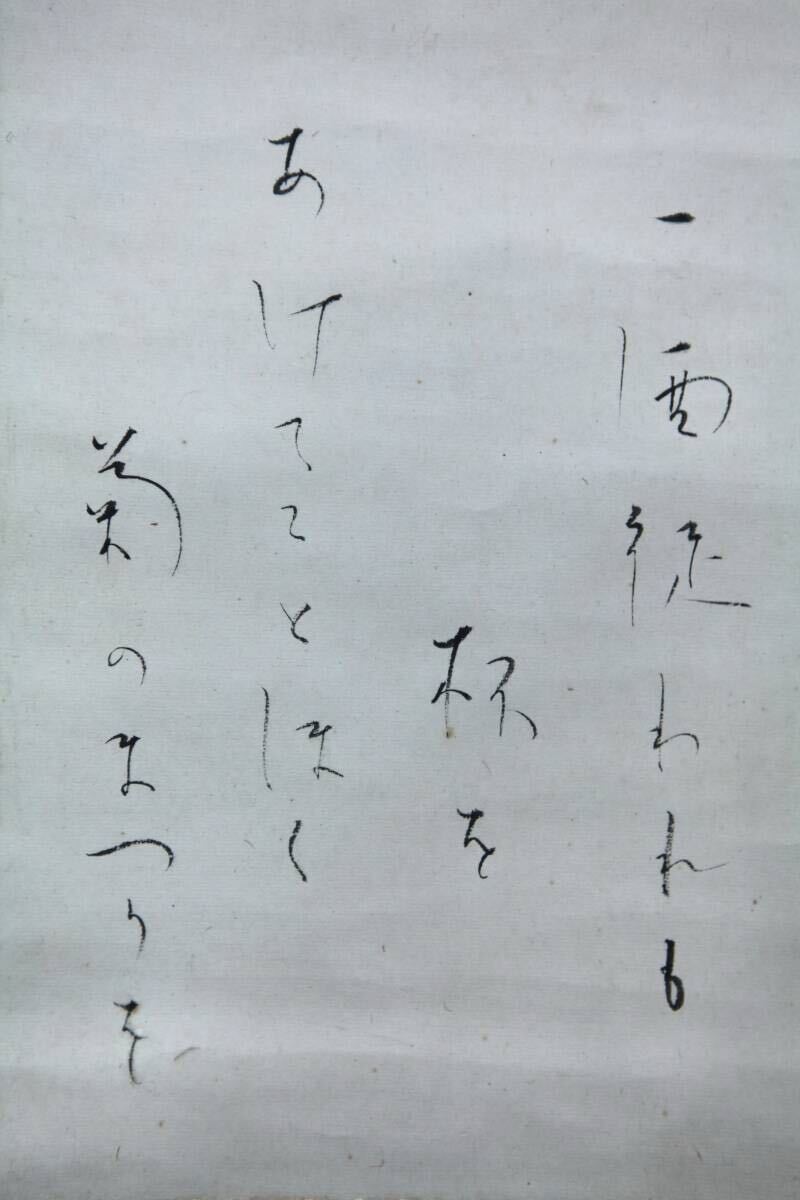 一酒徒われも
杯を
あけてことほく
菊のまつりを